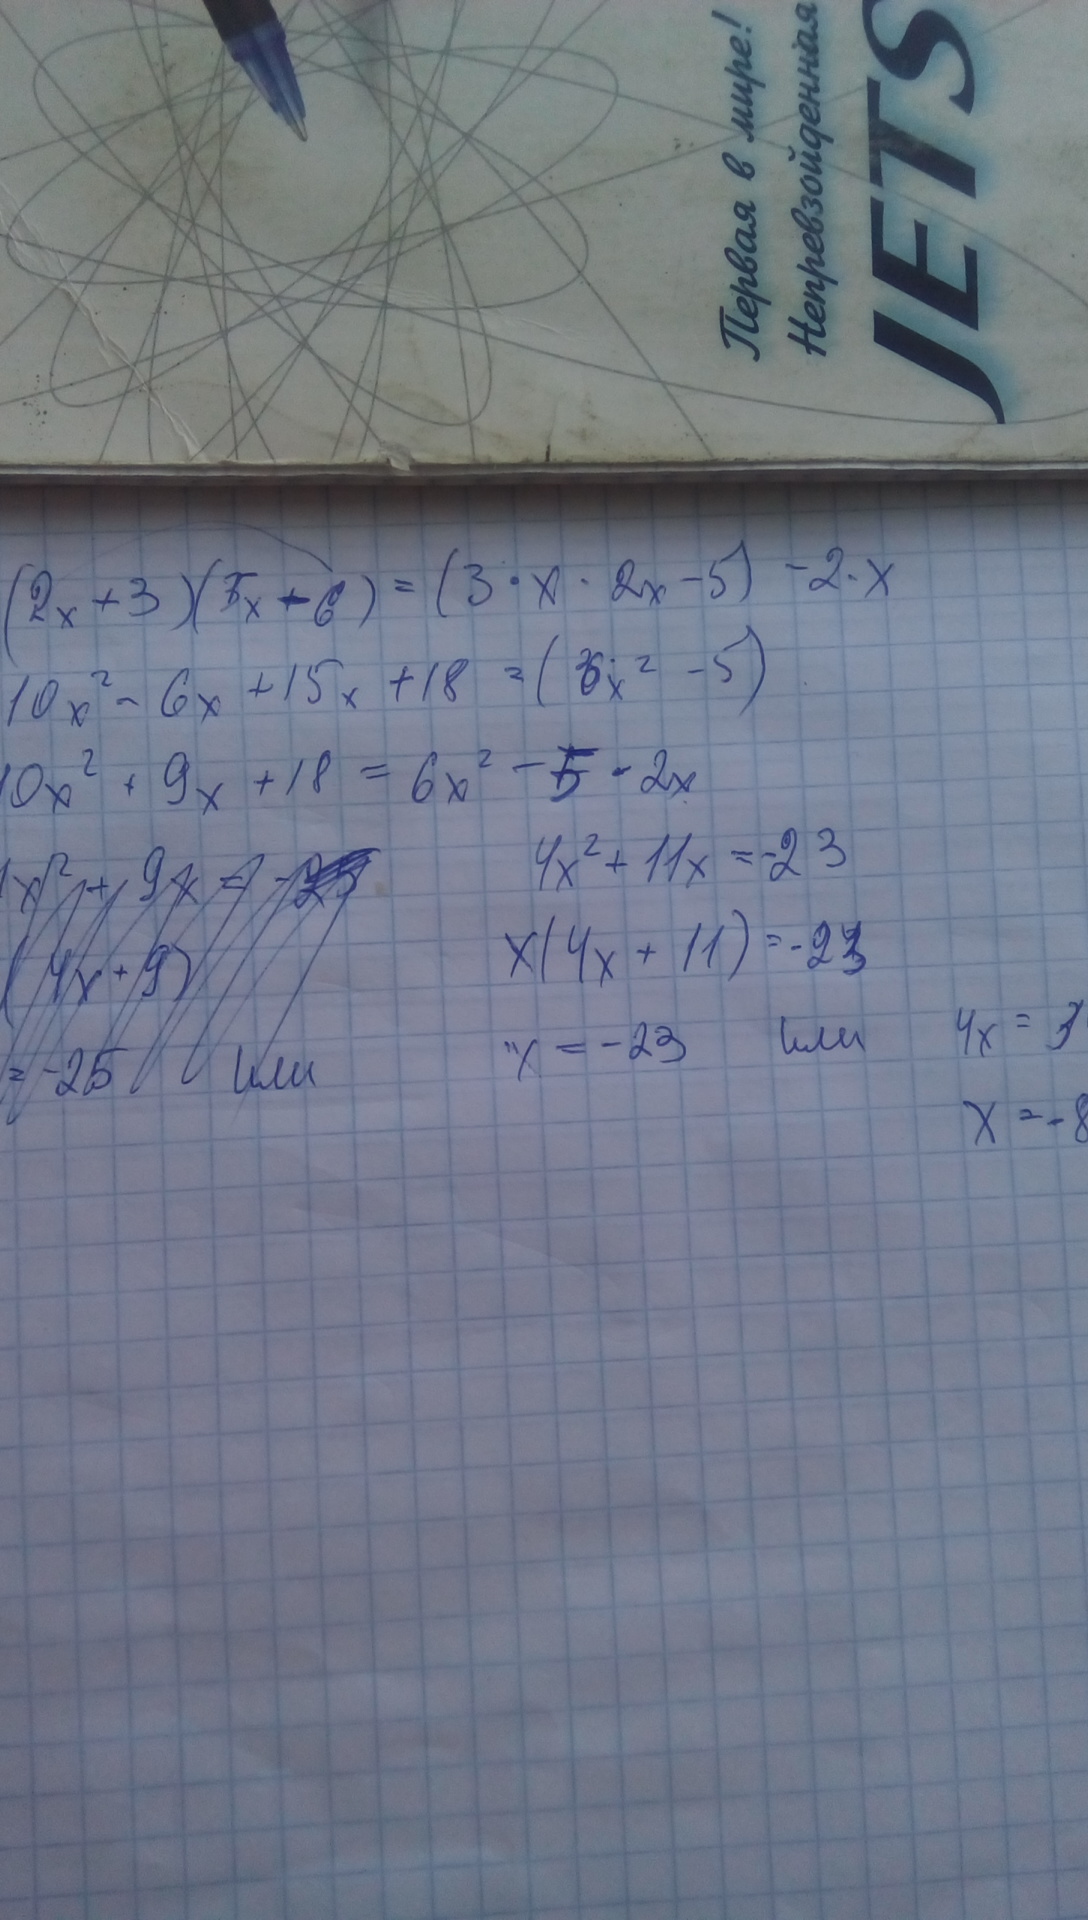 Первая в мире!
Непревзойденная
JETS
(2x + 3)(5x - 6) = (3 · x · 2x - 5) - 2 · x
10x² - 6x + 15x + 18 = (6x² - 5)
10x² + 9x + 18 = 6x² - 5 - 2x
x² + 9x = -
4x² + 11x = -23
(4x + 9)
x(4x + 11) = -23
= -25 или
x = -23 или 4x =
x = -8